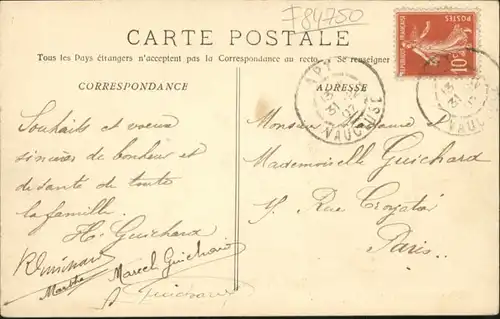 F84750
CARTE POSTALE
Tous les Pays étrangers n'acceptent pas la Correspondance au recto. Se renseigner
CORRESPONDANCE
ADRESSE
APT
VAUCLUSE
RÉPUBLIQUE FRANÇAISE
POSTES
10
Souhaits et voeux
sincères de bonheur et
de santé de toute
la famille.
H. Guichard
Marcel Guichard
Marthe
Guichard
Monsieur Madame
Mademoiselle Guichard
Rue Crozatier
Paris